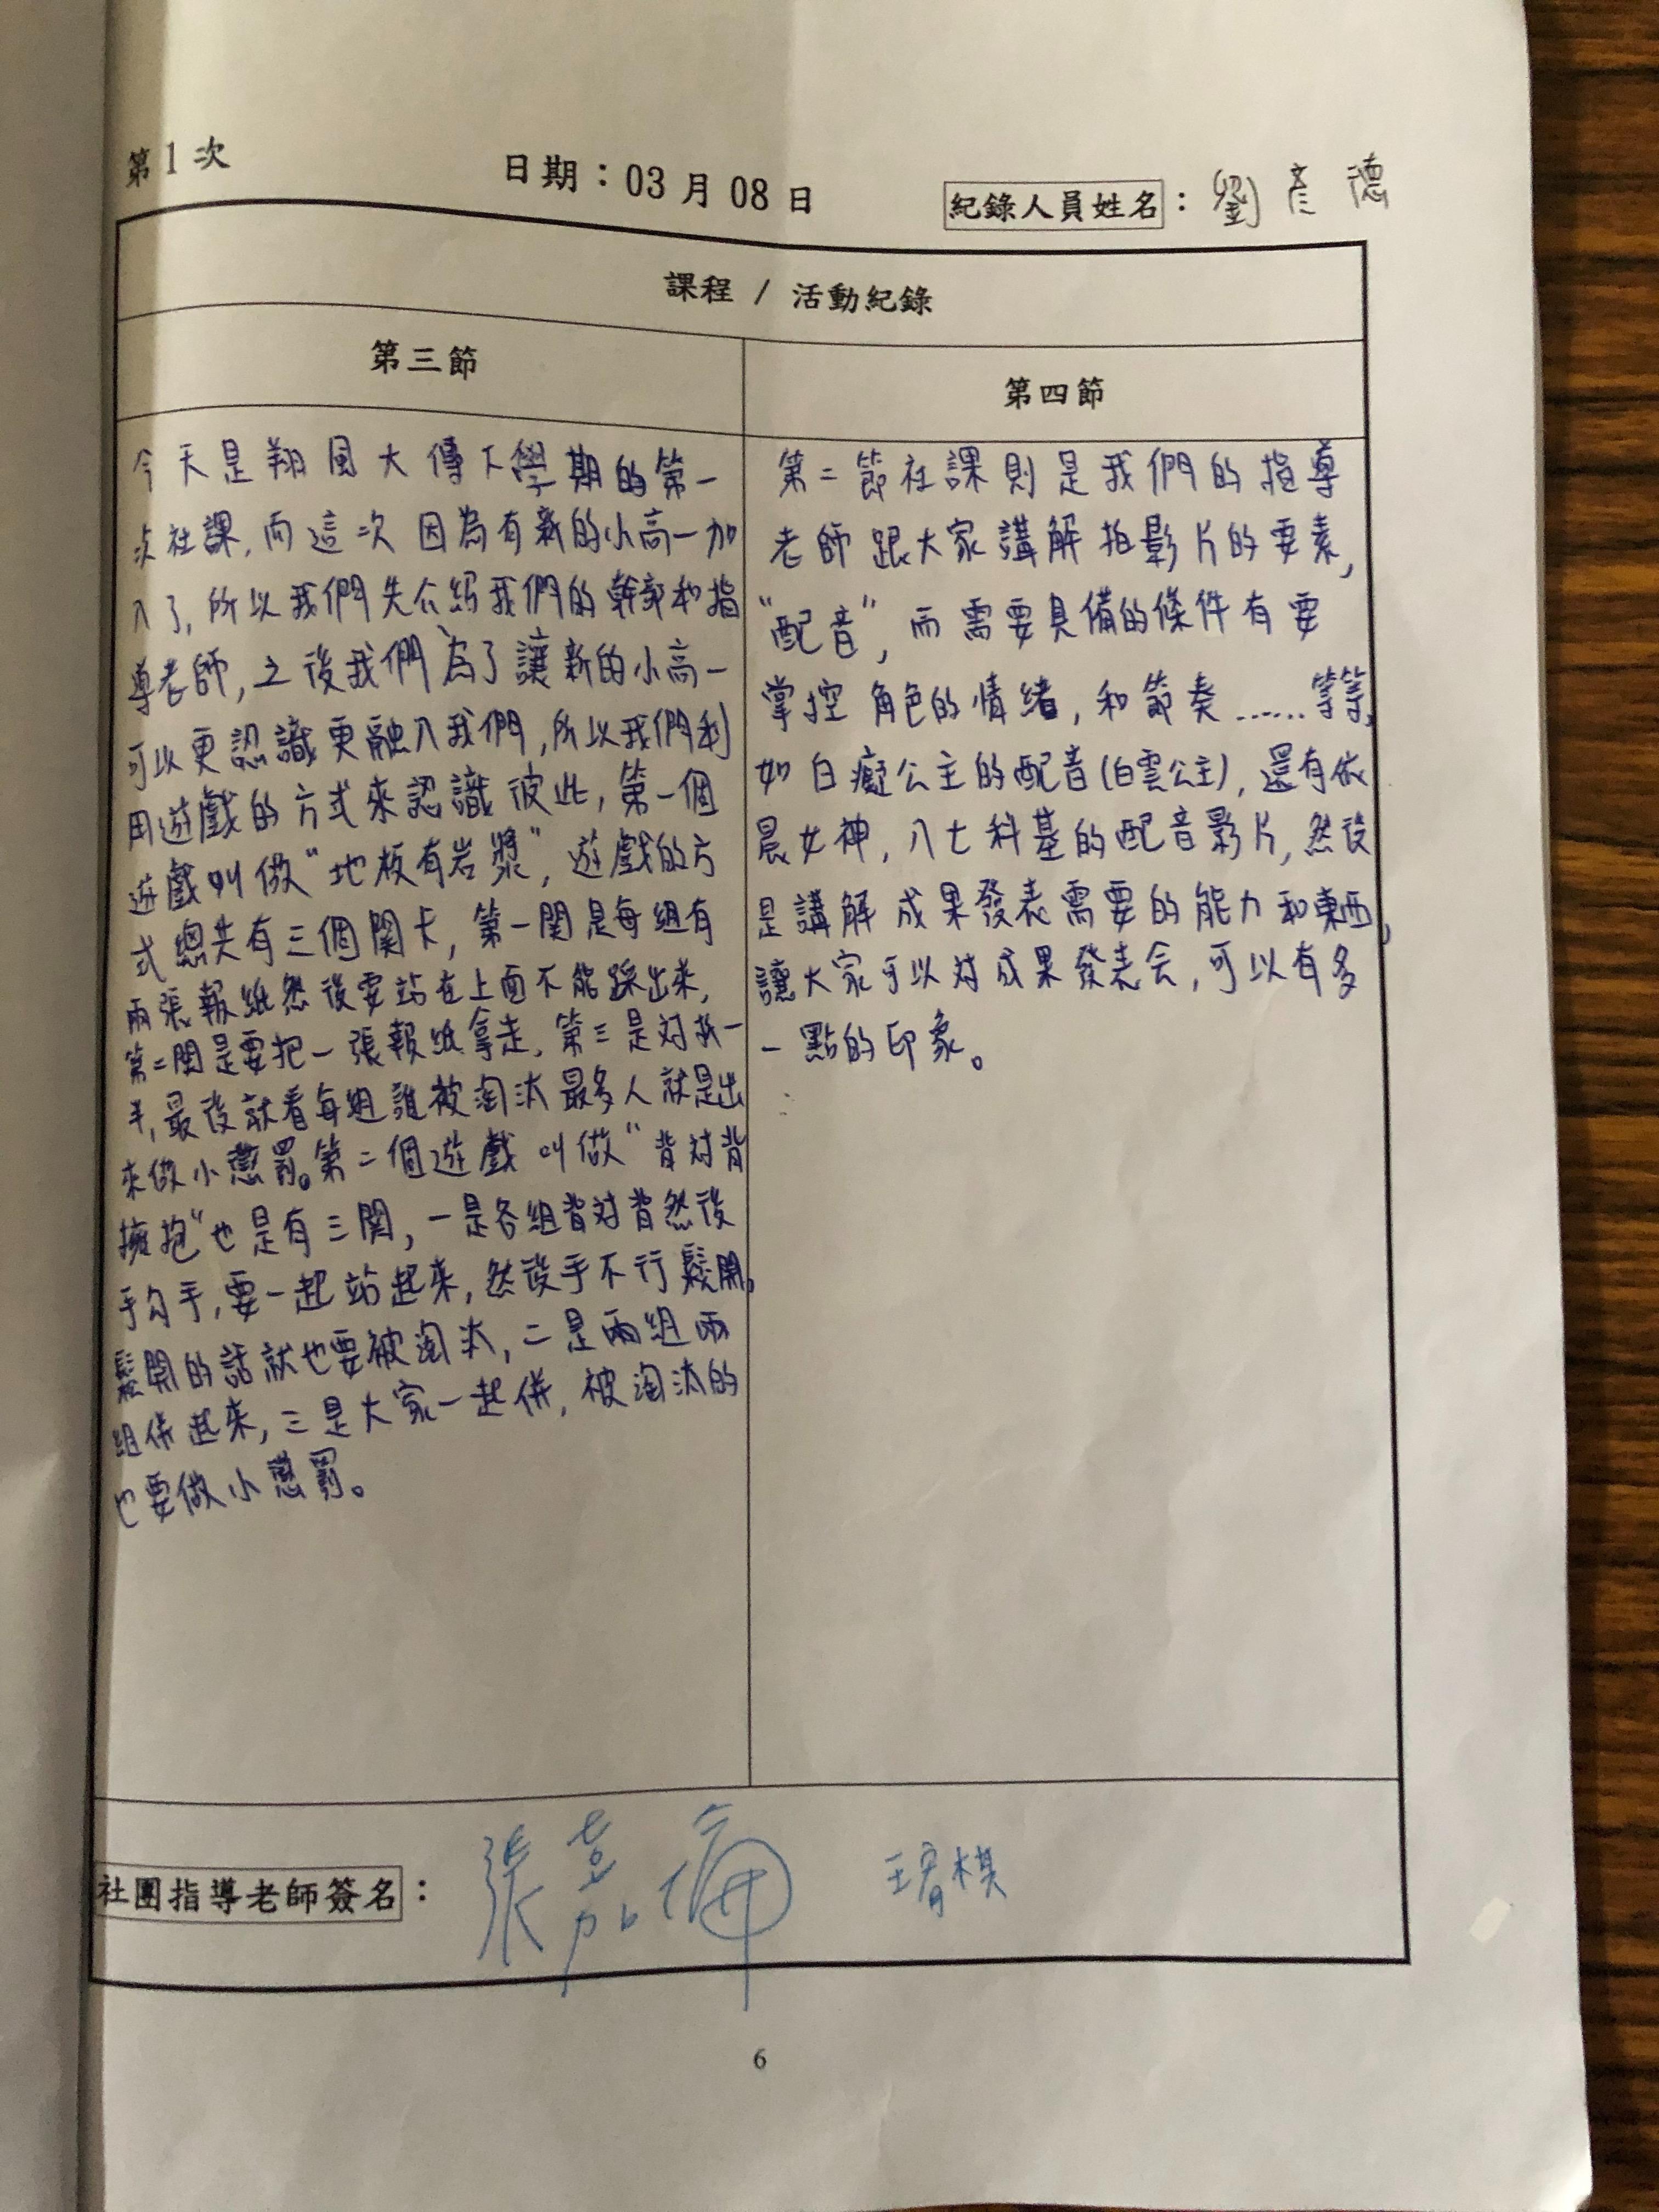 第1次
日期：03月08日
紀錄人員姓名：劉彥德
課程 / 活動紀錄
第三節
今天是翔風大傳下學期的第一
次社課,而這次因為有新的小高一加
入了,所以我們先介紹我們的幹部和指
導老師,之後我們為了讓新的小高一
可以更認識更融入我們,所以我們利
用遊戲的方式來認識彼此,第一個
遊戲叫做"地板有岩漿",遊戲的方
式總共有三個関卡,第一関是每組有
兩張報紙然後要站在上面不能踩出來,
第二関是要把一張報紙拿走,第三是対折一
半,最後就看每組誰被淘汰最多人就是出
來做小懲罰。第二個遊戲叫做"背対背
擁抱"也是有三関,一是各組背対背然後
手勾手,要一起站起來,然後手不行鬆開,
鬆開的話就也要被淘汰,二是兩組兩
組併起來,三是大家一起併,被淘汰的
也要做小懲罰。
第四節
第二節社課則是我們的指導
老師跟大家講解拍影片的要素,
"配音",而需要具備的條件有要
掌控角色的情緒,和節奏......等等,
如白癡公主的配音(白雲公主),還有依
晨女神,八七科基的配音影片,然後
是講解成果發表需要的能力和東西,
讓大家可以対成果發表会,可以有多
一點的印象。
社團指導老師簽名：
張嘉
6